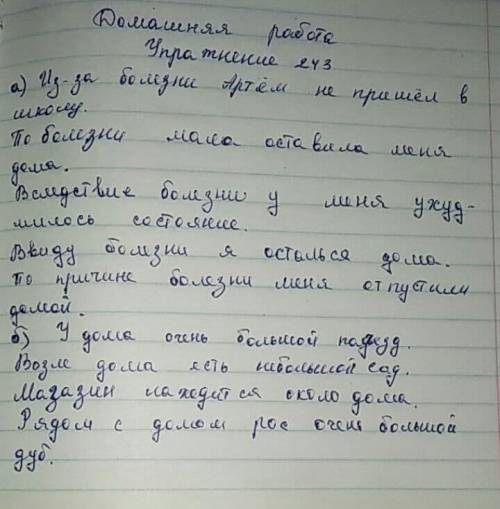 Домашняя работа
Упражнение 243
а) Из-за болезни Артём не пришёл в
школу.
По болезни мама оставила меня
дома.
Вследствие болезни у меня ухуд-
шилось состояние.
Ввиду болезни я остался дома.
По причине болезни меня отпустили
домой.
б) У дома очень большой подъезд.
Возле дома есть небольшой сад.
Магазин находится около дома.
Рядом с домом рос очень большой
дуб.